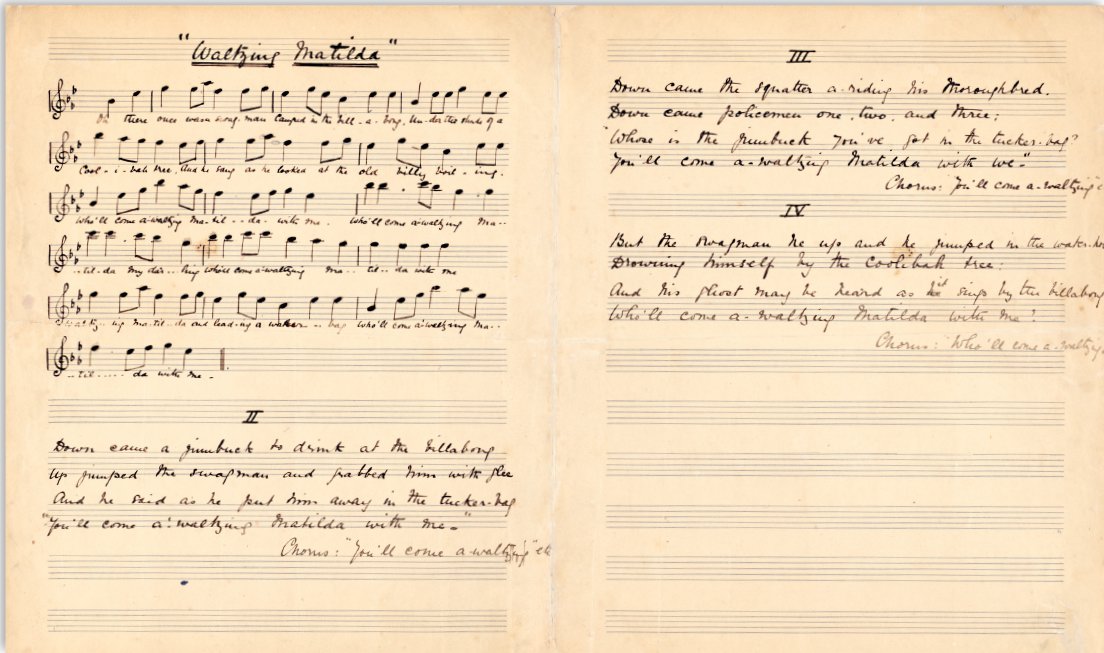 "Waltzing Matilda"
Oh there once was a swag-man Camped in the bill-a-bong, Un-der the shade of a
Cool-i-bah tree, And he sang as he looked at the old billy boil-ing.
Who'll come a-waltzing Ma-til--da- with me. Who'll come a-waltzing Ma--
--til-da my dar--ling Who'll come a-waltzing Ma--til--da with me
Waltz-ing Ma-til-da and lead-ing a water--bag Who'll come a-waltzing Ma--
--til-----da with me-
II
Down came a jumbuck to drink at the billabong
Up jumped the swagman and grabbed him with glee
And he said as he put him away in the tucker-bag
"You'll come a-waltzing Matilda with me-"
Chorus: "You'll come a-waltzing" etc
III
Down came the squatter a-riding his thoroughbred.
Down came policemen one, two, and three;
"Whose is the jumbuck you've got in the tucker-bag?
You'll come a-waltzing Matilda with we-"
Chorus: "You'll come a-waltzing" e
IV
But the swagman he up and he jumped in the water-ho
Drowning himself by the Coolibah tree:
And his ghost may be heard as it sings by the billabong
Who'll come a-waltzing Matilda with me?
Chorus: Who'll come a-waltzing